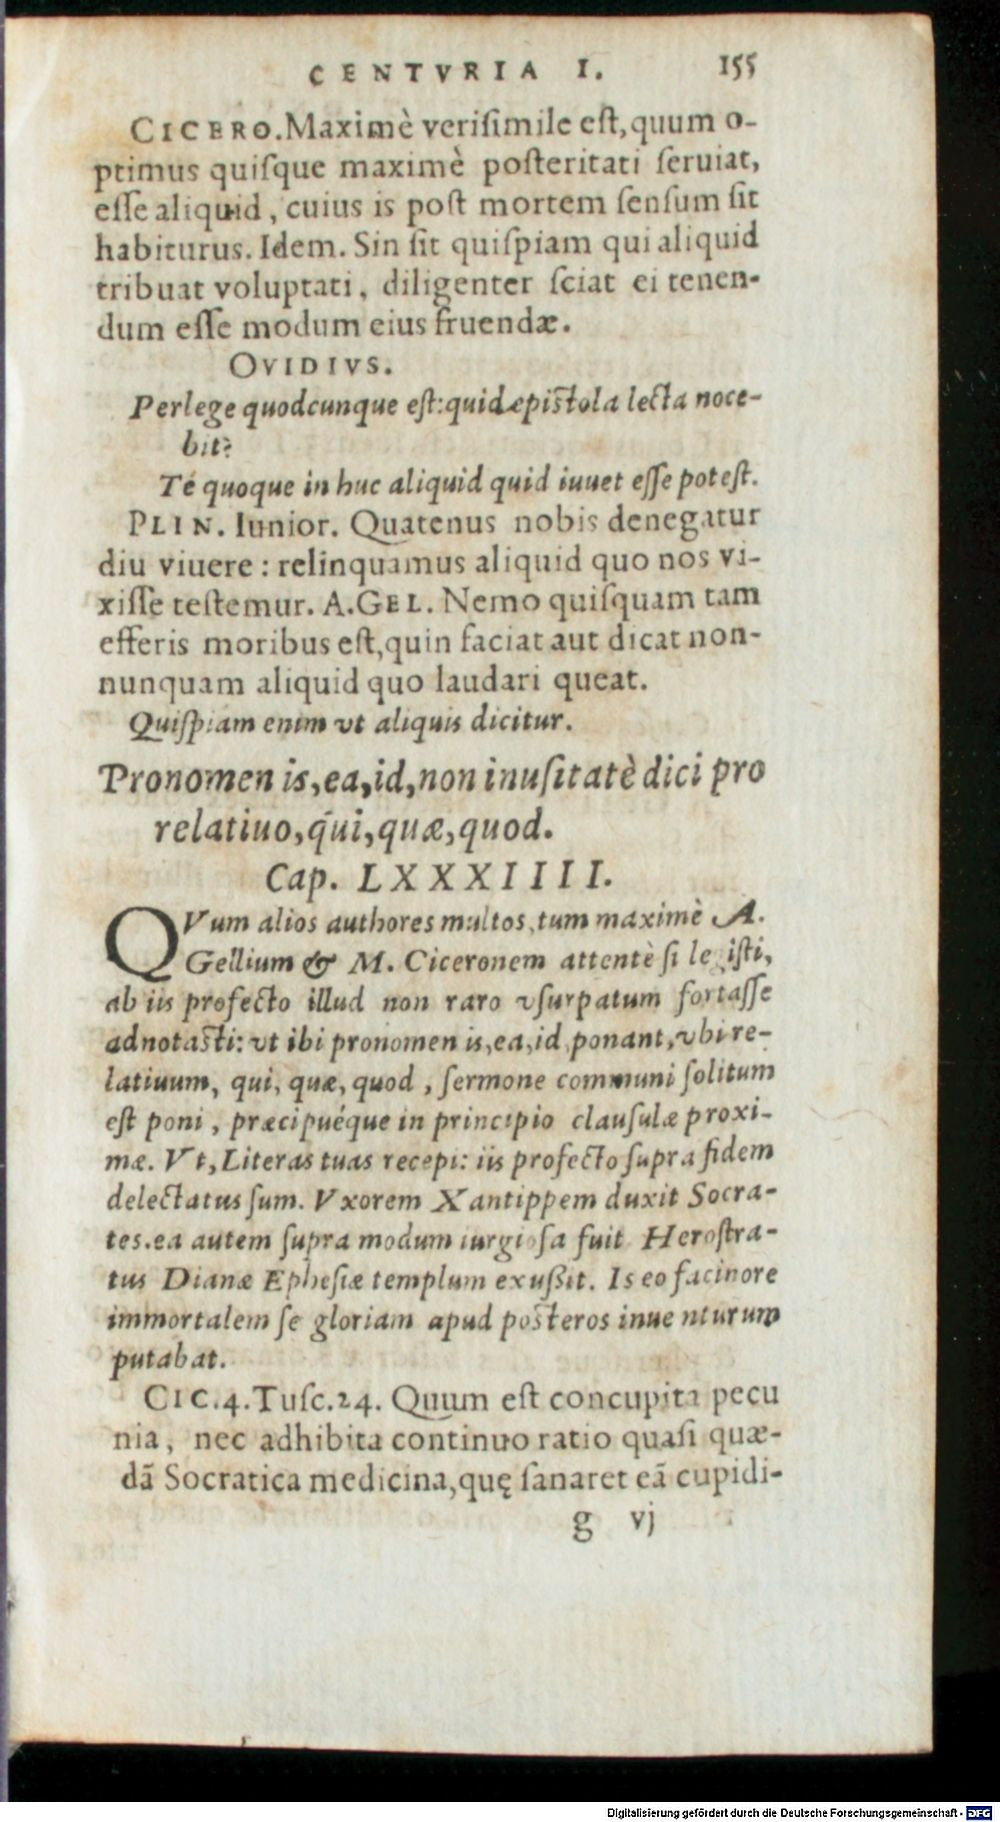 CENTVRIA I. 155
CICERO. Maximè veriſimile eſt, quum o-
ptimus quiſque maximè poſteritati ſeruiat,
eſſe aliquid, cuius is poſt mortem ſenſum ſit
habiturus. Idem. Sin ſit quiſpiam qui aliquid
tribuat voluptati, diligenter ſciat ei tenen-
dum eſſe modum eius fruendæ.
OVIDIVS.
Perlege quodcunque eſt: quid epiſtola lecta noce-
bit?
Te quoque in hac aliquid quid iuuet eſſe poteſt.
PLIN. Iunior. Quatenus nobis denegatur
diu viuere: relinquamus aliquid quo nos vi-
xiſſe teſtemur. A. GEL. Nemo quiſquam tam
efferis moribus eſt, quin faciat aut dicat non-
nunquam aliquid quo laudari queat.
Quiſpiam enim vt aliquis dicitur.
Pronomen is, ea, id, non inuſitatè dici pro
relatiuo, qui, quæ, quod.
Cap. LXXXIIII.
QVum alios authores multos, tum maximè A.
Gellium & M. Ciceronem attentè ſi legiſti,
ab iis profecto illud non raro vſurpatum fortaſſe
adnotaſti: vt ibi pronomen is, ea, id ponant, vbi re-
latiuum, qui, quæ, quod, ſermone communi ſolitum
eſt poni, præcipuéque in principio clauſulæ proxi-
mæ. Vt, Literas tuas recepi: iis profecto ſupra fidem
delectatus ſum. Vxorem Xantippem duxit Socra-
tes. ea autem ſupra modum iurgioſa fuit Heroſtra-
tus Dianæ Epheſiæ templum exuſsit. Is eo facinore
immortalem ſe gloriam apud poſteros inuenturum
putabat.
CIC. 4. Tuſc. 24. Quum eſt concupita pecu
nia, nec adhibita continuo ratio quaſi quæ-
dã Socratica medicina, quę ſanaret eã cupidi-
g vj
Digitalisierung gefördert durch die Deutsche Forschungsgemeinschaft - DFG